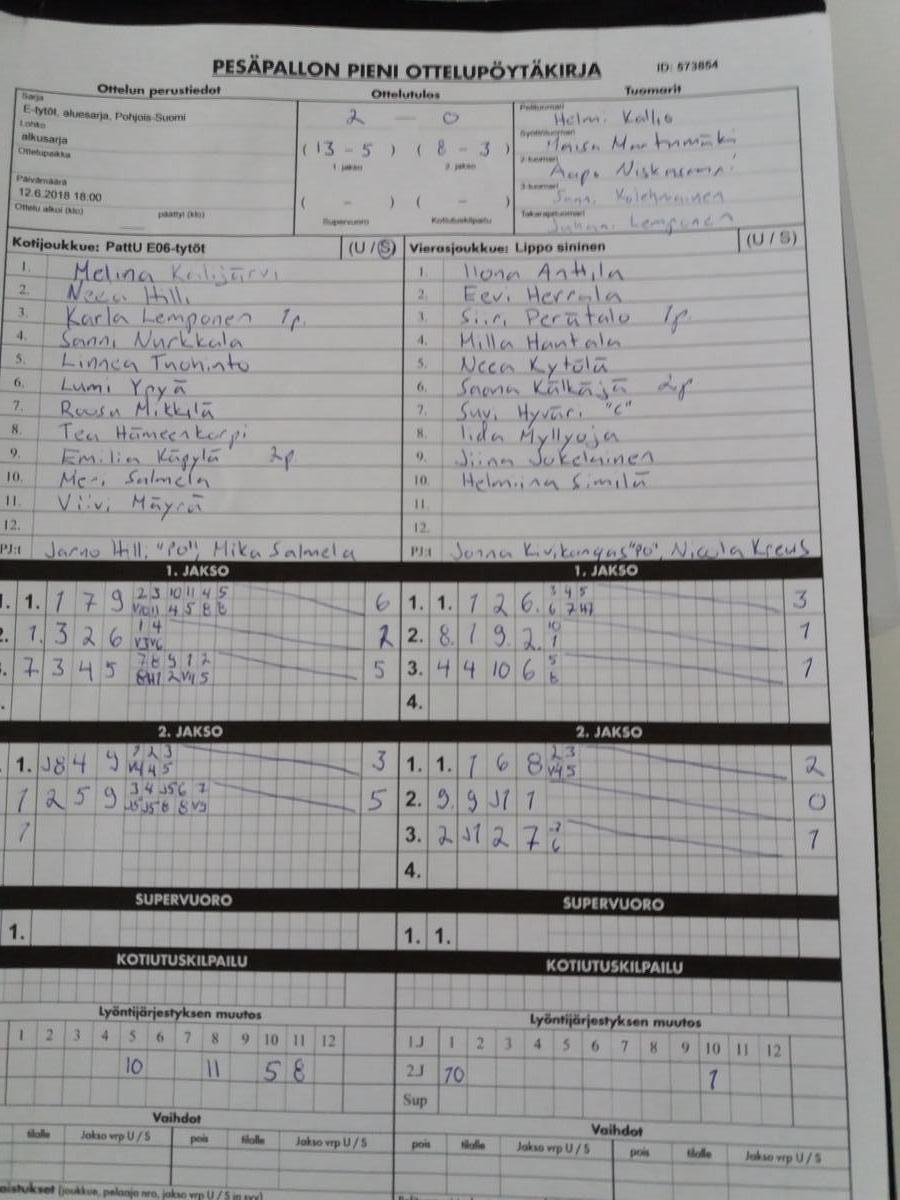 PESÄPALLON PIENI OTTELUPÖYTÄKIRJA ID: 573854
Ottelun perustiedot Ottelutulos Tuomarit
Sarja
E-tytöt, aluesarja, Pohjois-Suomi
Lohko
alkusarja
Ottelupaikka
Päivämäärä
12.6.2018 18:00
Ottelu alkoi (klo) päättyi (klo)
2 — 0
( 13 - 5 ) ( 8 - 3 )
1. jakso 2. jakso
( - ) ( - )
Supervuoro Kotiutuskilpailu
Pelituomari
Helmi Kallio
Syöttötuomari
2-tuomari
Aapo
3-tuomari
Kolehmainen
Takarajatuomari
Lemponen
Kotijoukkue: PattU E06-tytöt (U / S) Vierasjoukkue: Lippo sininen (U / S)
1. Melina Kalijärvi 1. Ilona Anttila
2. Neea Hilli 2. Eevi Herrala
3. Karla Lemponen 1p. 3. Siiri Perätalo 1p
4. Sanni Nurkkala 4. Milla Hantala
5. Linnea Tuohinto 5. Neea Kytölä
6. Lumi Ypyä 6. Saana Kälkäjä 2p
7. Roosa Mikkilä 7. Suvi Hyväri "C"
8. Tea Hämeenkorpi 8. Iida Myllyoja
9. Emilia Käpylä 2p 9. Jiina Jokelainen
10. Meri Salmela 10. Helmiina Similä
11. Viivi Mäyrä 11.
12. 12.
PJ:t Jarno Hilli "PO", Mika Salmela PJ:t Jonna Kivikangas "PO", Nicola Kreus
1. JAKSO 1. JAKSO
1. 1. 1 7 9 2 3 10 11 4 5 6 1. 1. 1 2 6. 3 4 5 3
2. 1. 3 2 6 1 4 2 2. 8. 1 9. 2. 10 1 1
3. 7 3 4 5 7 8 9 1 2 5 3. 4 4 10 6 5 6 1
4.
2. JAKSO 2. JAKSO
1. J8 4 9 1 2 3 V4 4 5 3 1. 1. 1 6 8 2 3 V4 5 2
1 2 5 9 3 4 J5 6 7 5 2. 9. 9 J1 1 0
1 3. 2 J1 2 7 1
4.
SUPERVUORO SUPERVUORO
1. 1. 1.
KOTIUTUSKILPAILU KOTIUTUSKILPAILU
Lyöntijärjestyksen muutos Lyöntijärjestyksen muutos
1 2 3 4 5 6 7 8 9 10 11 12 1J 1 2 3 4 5 6 7 8 9 10 11 12
10 11 5 8 2J 10 1
Sup
Vaihdot Vaihdot
tilalle Jakso vrp U / S pois tilalle Jakso vrp U / S pois tilalle Jakso vrp U / S pois tilalle Jakso vrp U / S
(joukkue, pelaaja nro, jakso vrp U / S ja syy)